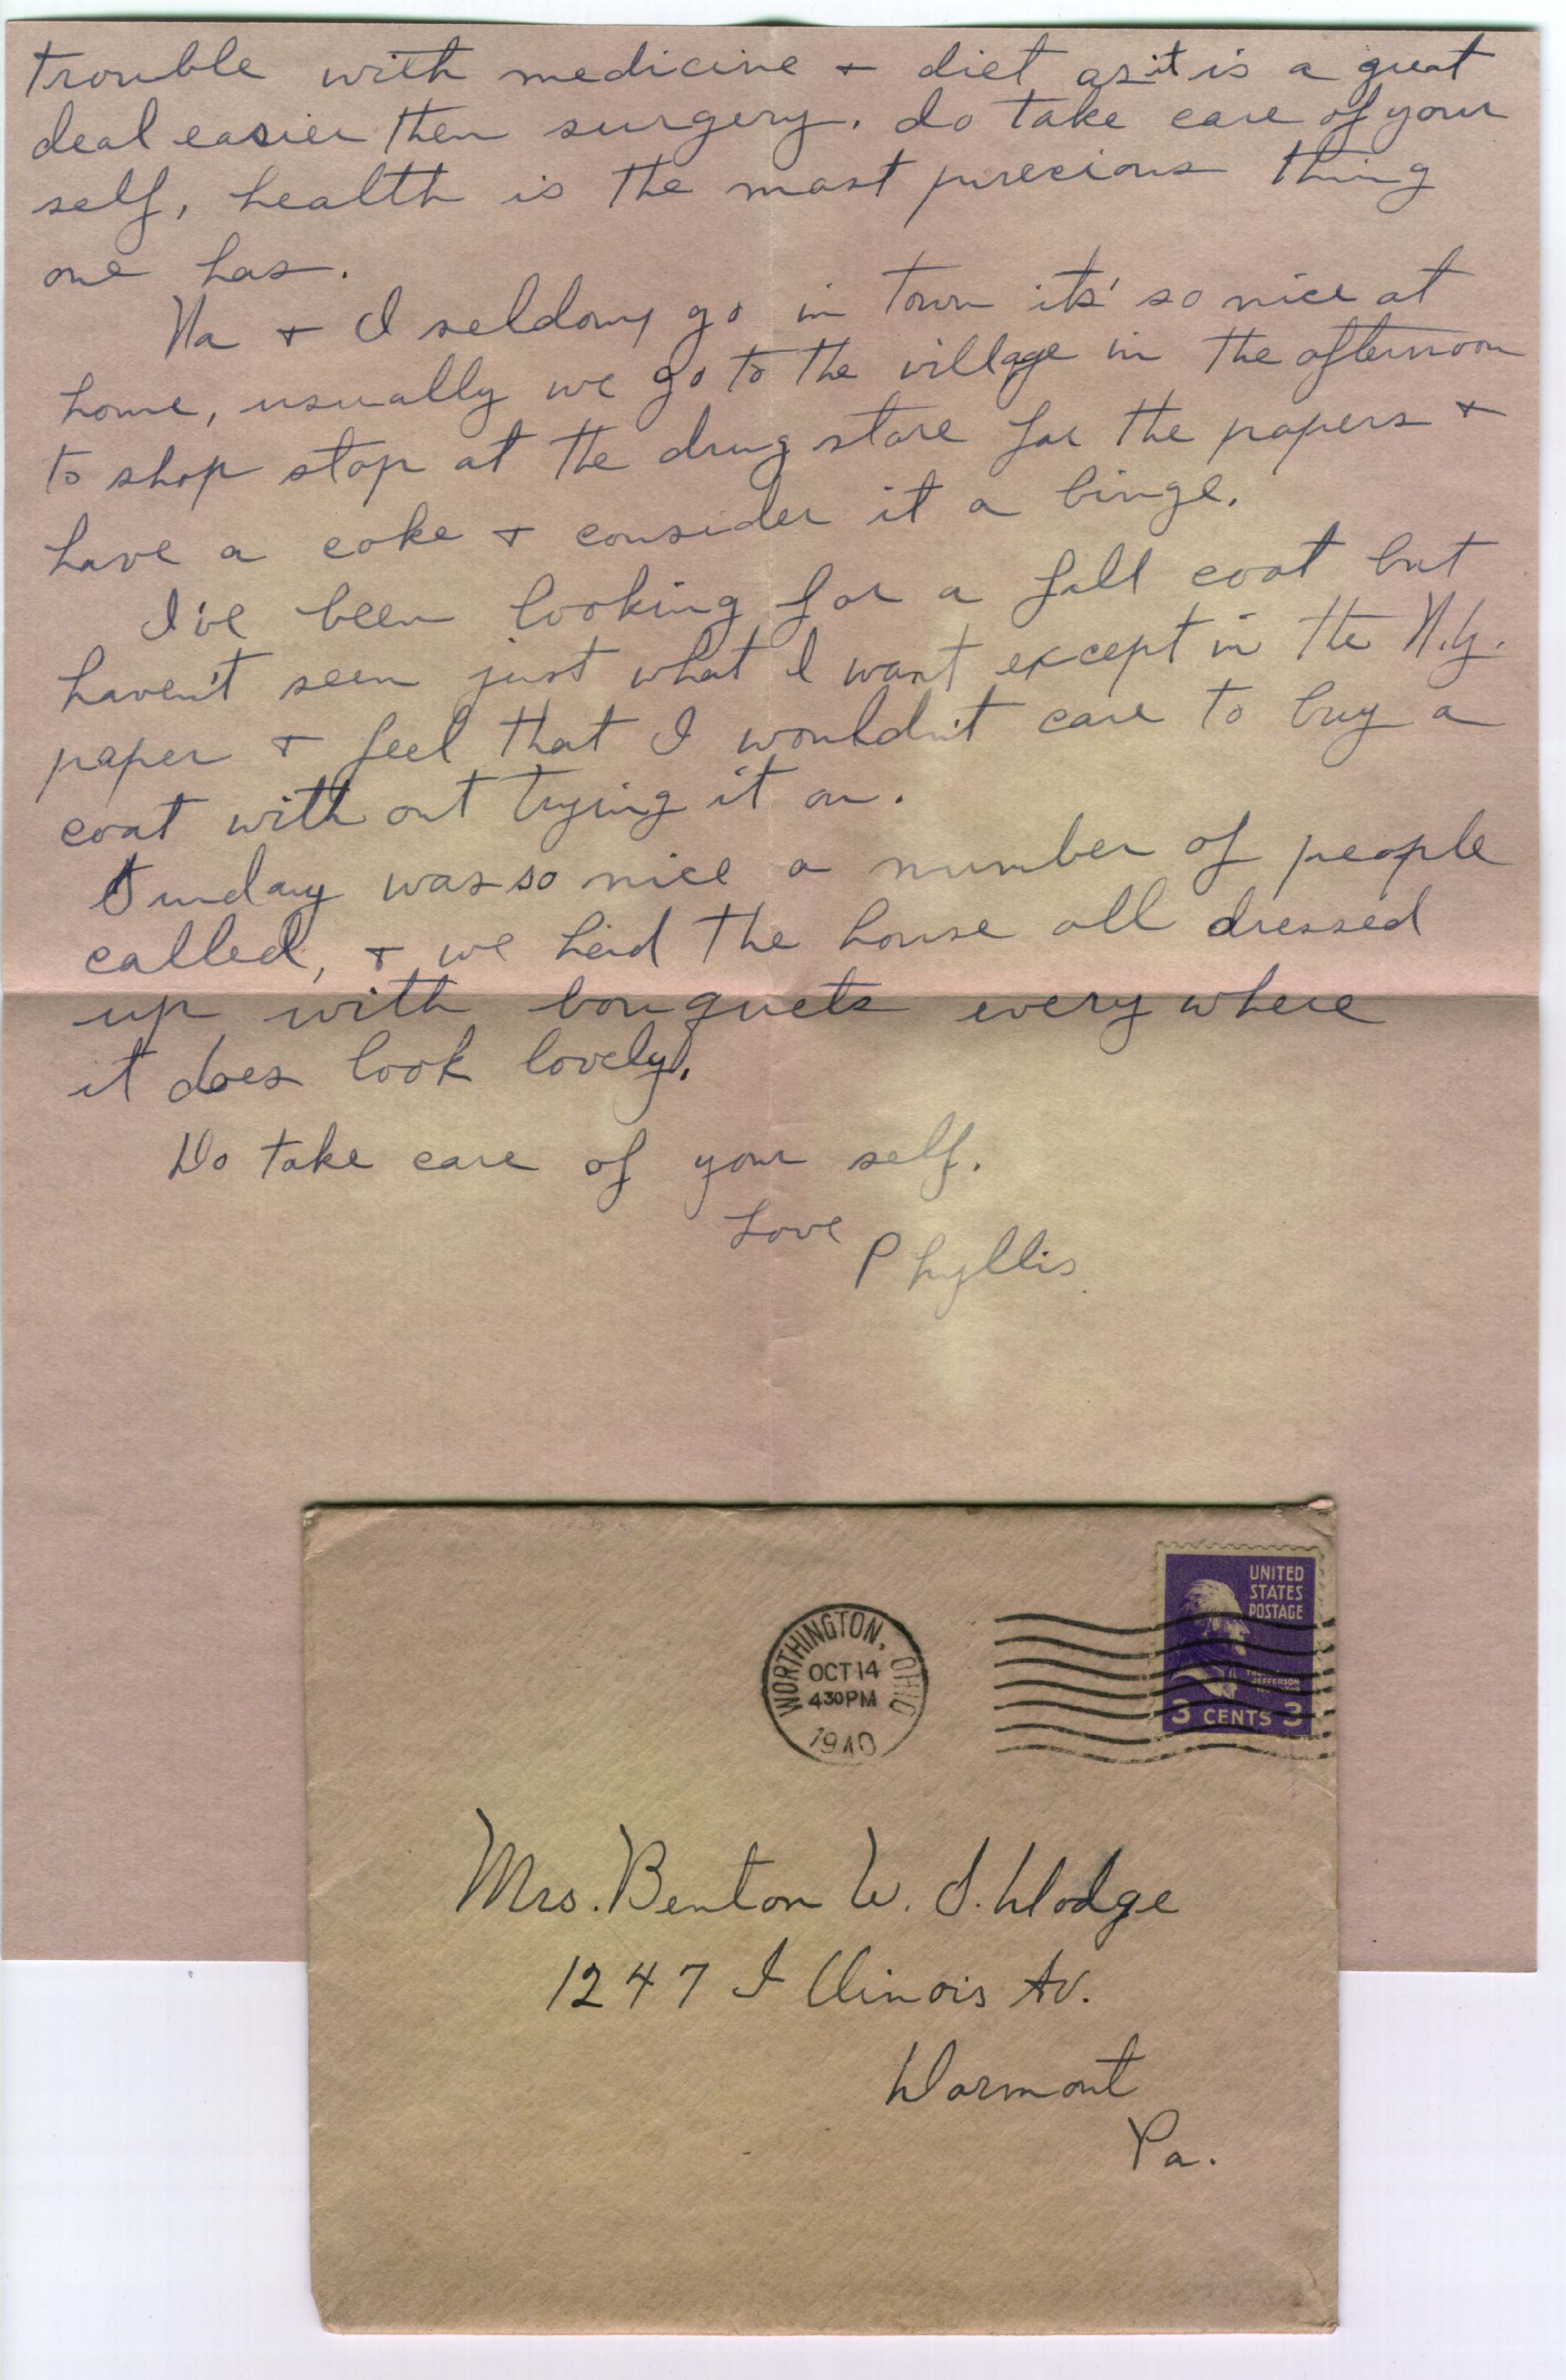 trouble with medicine + diet as it is a great
deal easier then surgery. do take care of your
self, health is the most precious thing
one has.
Na + I seldom go in town its' so nice at
home, usually we go to the village in the afternoon
to shop stop at the drug store for the papers +
have a coke + consider it a binge.
I've been looking for a fall coat but
haven't seen just what I want except in the N.Y.
paper + feel that I wouldn't care to buy a
coat with out trying it on.
Sunday was so nice a number of people
called, + we had the house all dressed
up with bouquets every where
it does look lovely.
Do take care of your self.
Love
Phyllis
UNITED
STATES
POSTAGE
WORTHINGTON, OHIO
OCT 14
430PM
1940
THOMAS
JEFFERSON
3 CENTS 3
Mrs. Benton W. S. Dodge
1247 Illinois Av.
Dormont
Pa.